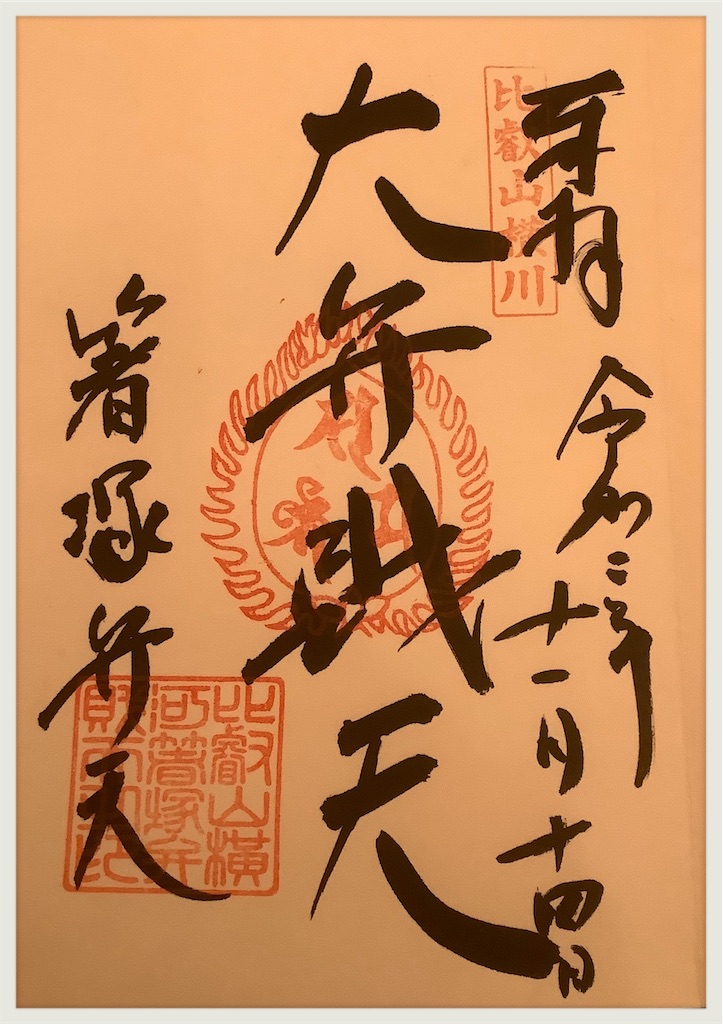 比叡山横川
令和二年十一月十四日
大弁財天
箸塚弁天
比叡山横
河箸塚弁
財天